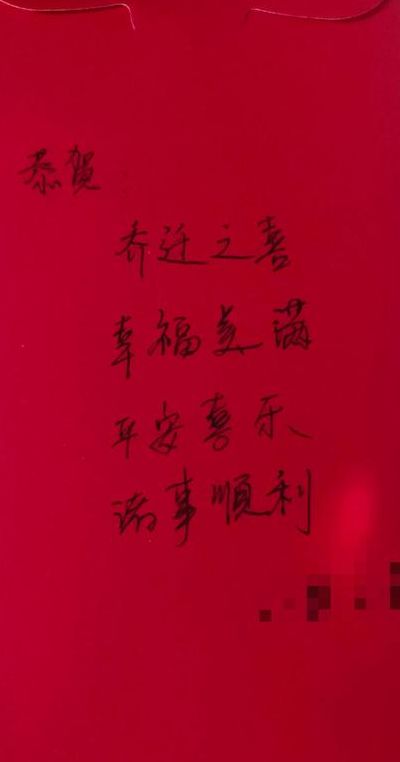 恭贺
乔迁之喜
幸福美满
平安喜乐
诸事顺利